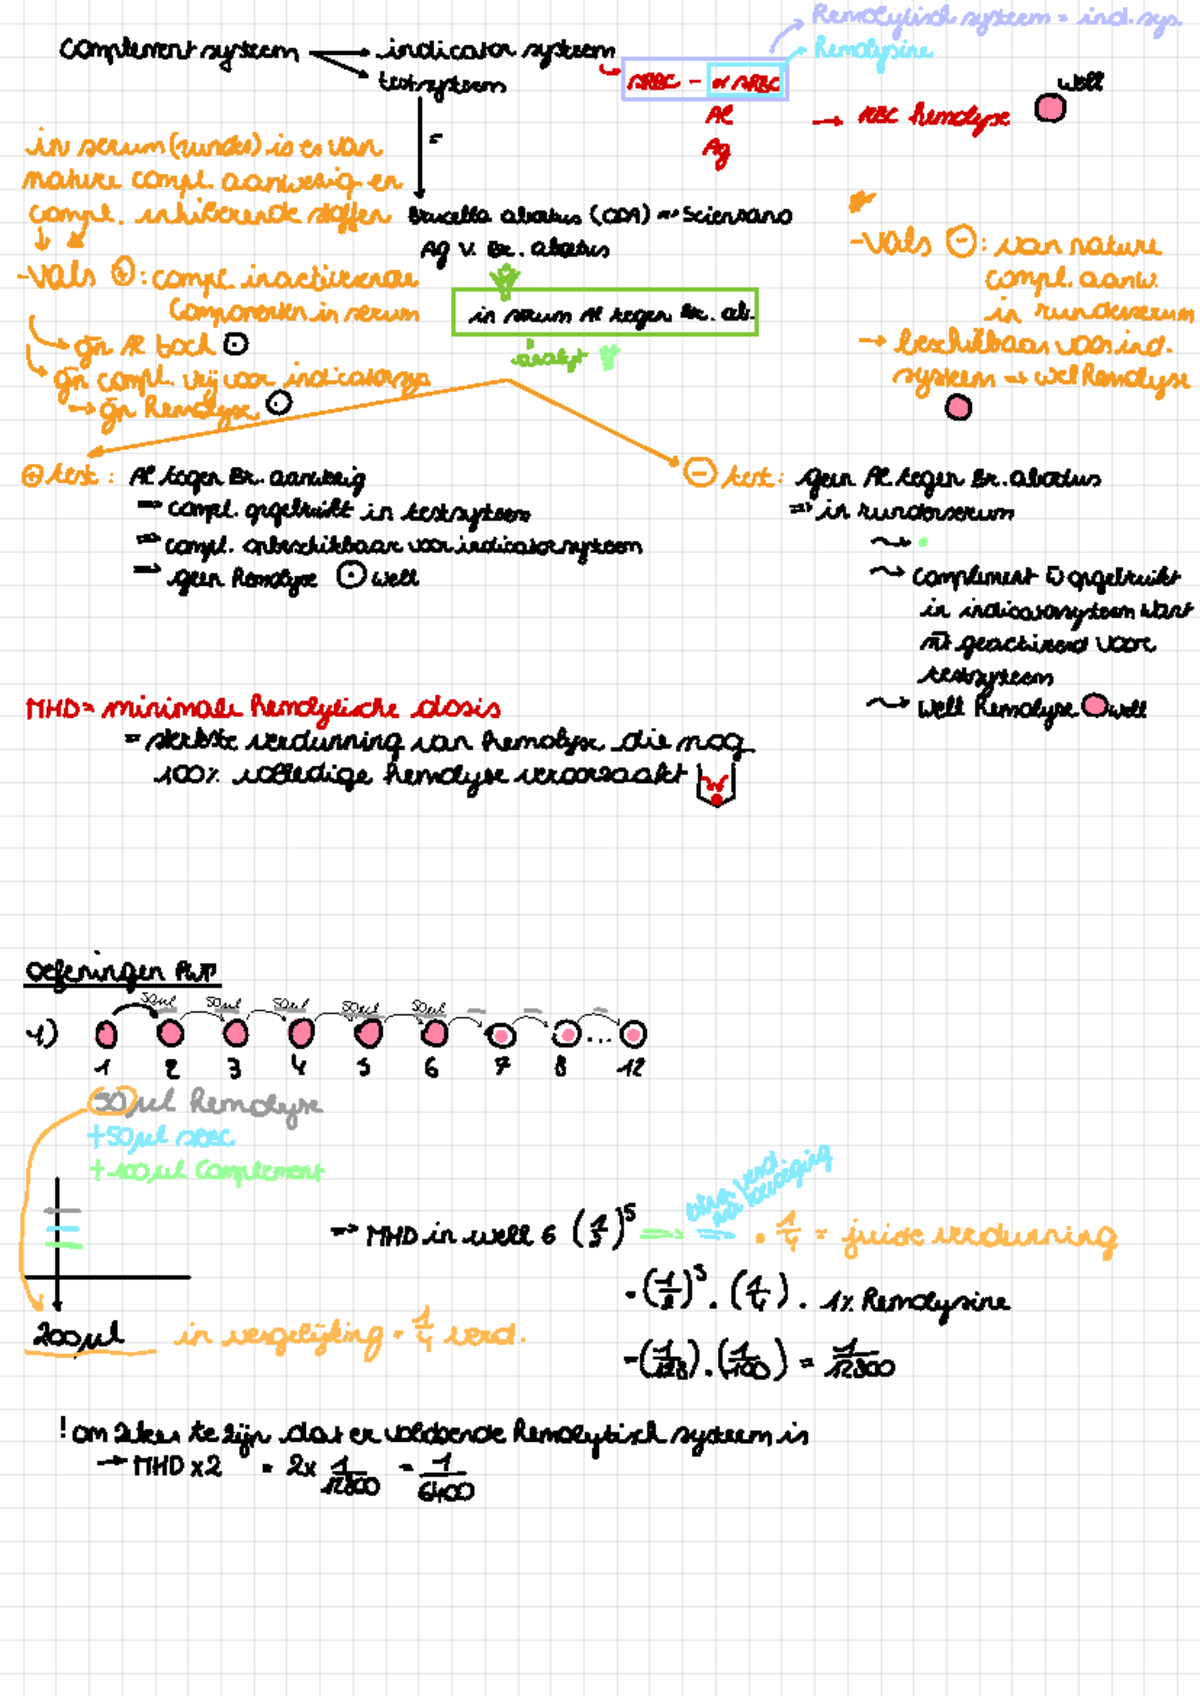 Hemolytisch systeem = ind. sys.
Hemolysine
complement systeem → indicator systeem
testsysteem
SRBC - α SRBC
Al
Ag
→ RBC hemolyse
well
in serum (runder) is er van
nature compl. aanwezig en
compl. inhiberende stoffen
-Vals ⊕: compl. inactiverende
componenten in serum
→ gn Al toch
→ gn compl. vrij voor indicatorsys
→ gn hemolyse
=
Brucella abortus (CDA) → Sciensano
Ag v. Br. abortus
in serum Al tegen Br. ab.
analyt
-Vals ⊖: van nature
compl. aanw.
in runderserum
→ beschikbaar voor ind.
systeem → wel hemolyse
⊕ test: Al tegen Br. aanwezig
⇒ compl. opgebruikt in testsysteem
⇒ compl. onbeschikbaar voor indicatorsysteem
⇒ geen hemolyse ⊙ well
⊖ test: geen Al tegen Br. abortus
⇒ in runderserum
complement opgebruikt
in indicatorsysteem want
nt geactiveerd voor
testsysteem
Well hemolyse well
MHD = minimale hemolytische dosis
= sterkste verdunning van hemolyse die nog
100% volledige hemolyse veroorzaakt
Oefeningen PWP
50µl 50µl 50µl 50µl 50µl
1)
1 2 3 4 5 6 7 8 ... 12
50µl hemolyse
+50µl SRBC
+100µl complement
⇒ MHD in well 6 (1/2)^5 · 1/4 = juiste verdunning
= (1/2)^5 . (1/4) . 1% Hemolysine
200µl in vergelijking = 1/4 verd.
= (1/128) . (1/100) = 1/12800
! om zeker te zijn dat er voldoende hemolytisch systeem is
→ MHD x2 = 2x 1/12800 = 1/6400